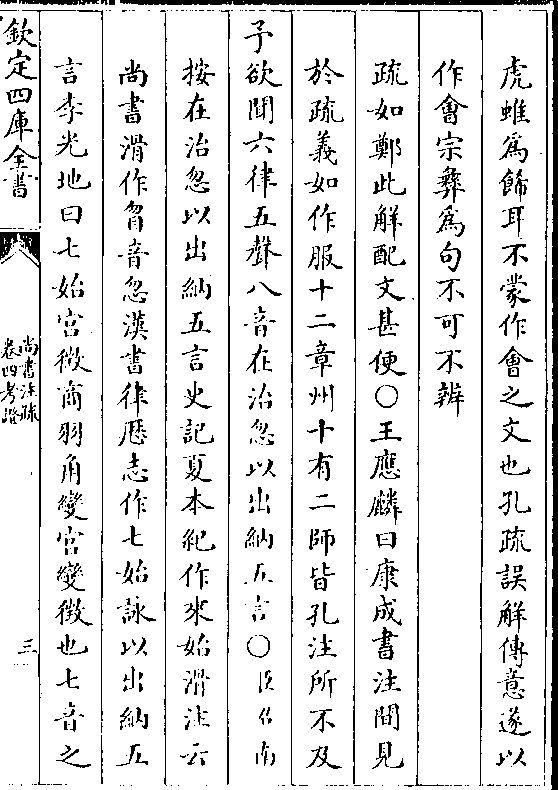 虎蜼爲飾耳不蒙作會之文也孔疏誤解傳意遂以
作會宗彝爲句不可不辨
疏如鄭此解配文甚便○王應麟曰康成書注間見
於疏義如作服十二章州十有二師皆孔注所不及
予欲聞六律五聲八音在治忽以出納五言○臣召南
按在治忽以出納五言史記夏本紀作來始滑注云
尚書滑作曶音忽漢書律歷志作七始詠以出納五
言李光地曰七始宮徵商羽角變宮變徵也七音之
欽定四庫全書
尚書注疏
卷四考證
三